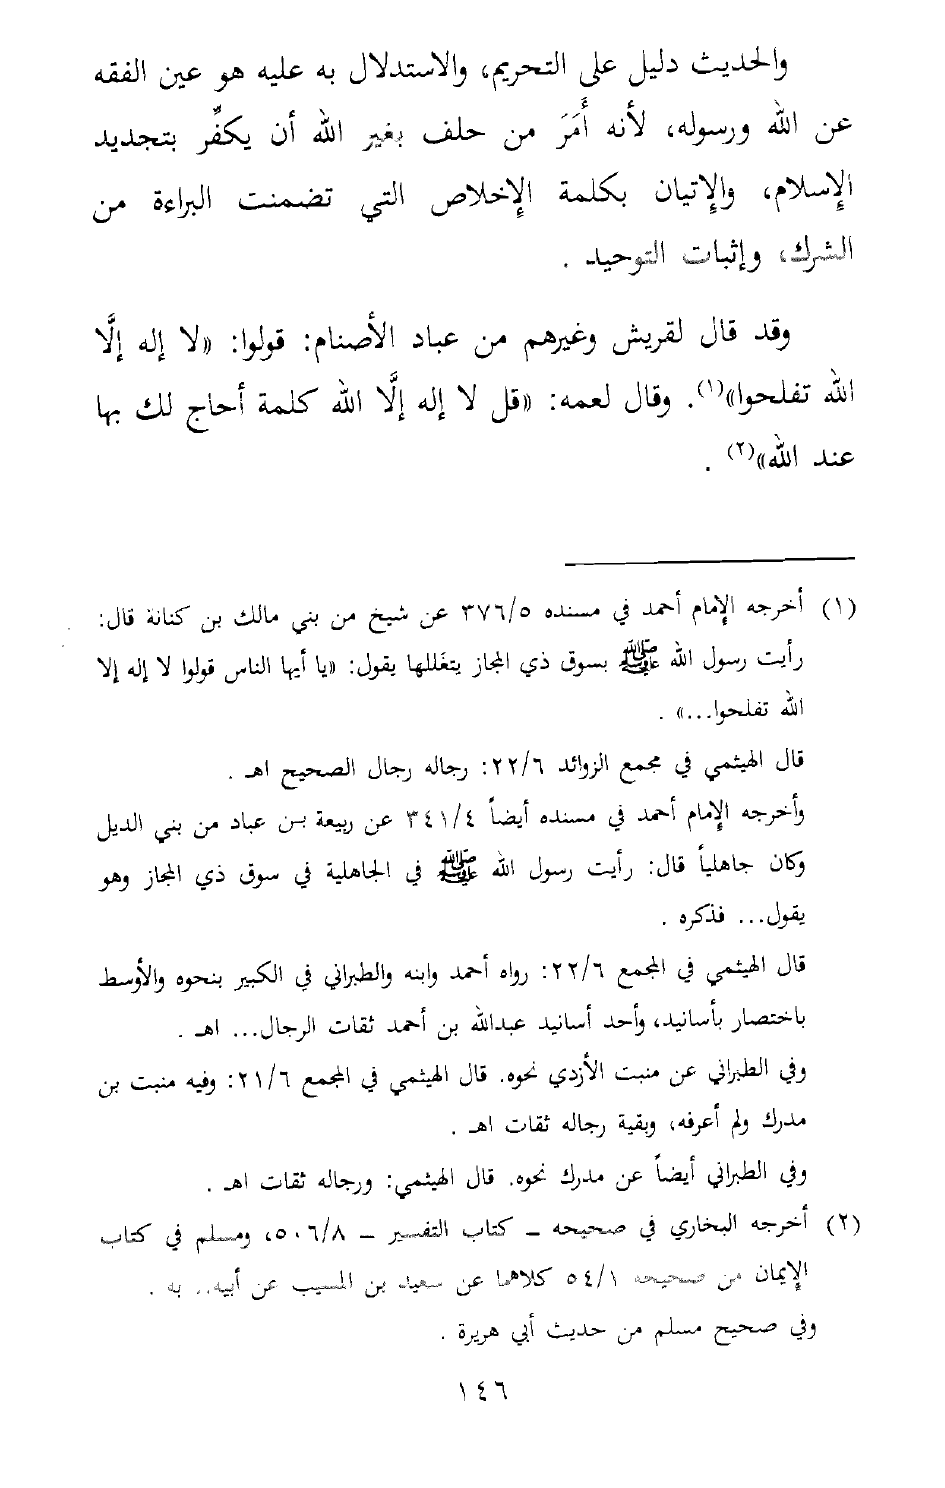 والحديث دليل على التحريم، والاستدلال به عليه هو عين الفقه
عن الله ورسوله، لأنه أَمَرَ من حلف بغير الله أن يكفِّر بتجديد
الإسلام، والإتيان بكلمة الإخلاص التي تضمنت البراءة من
الشرك، وإثبات التوحيد .
وقد قال لقريش وغيرهم من عباد الأصنام: قولوا: «لا إله إلَّا
الله تفلحوا»(١). وقال لعمه: «قل لا إله إلَّا الله كلمة أحاج لك بها
عند الله»(٢) .
(١) أخرجه الإمام أحمد في مسنده ٣٧٦/٥ عن شيخ من بني مالك بن كنانة قال:
رأيت رسول الله ﷺ بسوق ذي المجاز يتغللها يقول: «يا أيها الناس قولوا لا إله إلا
الله تفلحوا...» .
قال الهيثمي في مجمع الزوائد ٢٢/٦: رجاله رجال الصحيح اهـ .
وأخرجه الإمام أحمد في مسنده أيضاً ٣٤١/٤ عن ربيعة بن عباد من بني الديل
وكان جاهلياً قال: رأيت رسول الله ﷺ في الجاهلية في سوق ذي المجاز وهو
يقول... فذكره .
قال الهيثمي في المجمع ٢٢/٦: رواه أحمد وابنه والطبراني في الكبير بنحوه والأوسط
باختصار بأسانيد، وأحد أسانيد عبدالله بن أحمد ثقات الرجال... اهـ .
وفي الطبراني عن منبت الأزدي نحوه. قال الهيثمي في المجمع ٢١/٦: وفيه منبت بن
مدرك ولم أعرفه، وبقية رجاله ثقات اهـ .
وفي الطبراني أيضاً عن مدرك نحوه. قال الهيثمي: ورجاله ثقات اهـ .
(٢) أخرجه البخاري في صحيحه – كتاب التفسير – ٥٠٦/٨، ومسلم في كتاب
الإيمان من صحيحه ٥٤/١ كلاهما عن سعيد بن المسيب عن أبيه.. به .
وفي صحيح مسلم من حديث أبي هريرة .
١٤٦